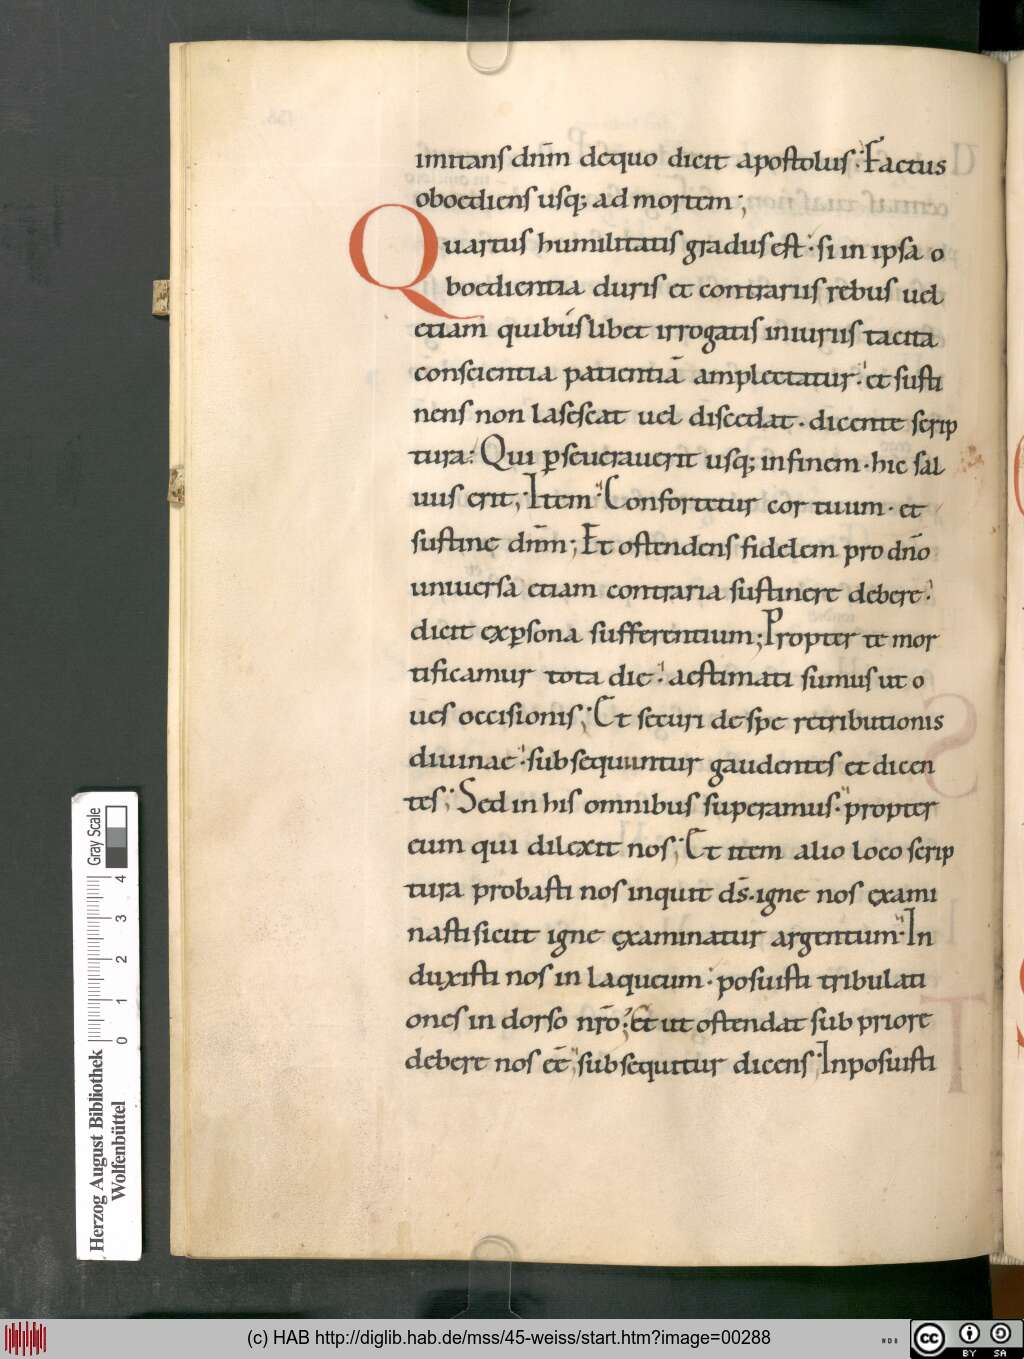 imitans dn̄m dequo dicit apostolus; Factus
oboediens usq; ad mortem;
Quartus humilitatis gradus est· si in ipsa o
boedientia duris et contrariis rebus uel
etiam quibus libet irrogatis iniuriis tacita
conscientia patientiā amplectatur· et susti
nens non lasescat uel discedat· dicente scrip
tura: Qui ꝑseuerauerit usq; infinem· hic sal
uus erit; Item Confortetur cor tuum· et
sustine dn̄m; Et ostendens fidelem pro dn̄o
uniuersa etiam contraria sustinere debere·
dicit exꝑsona sufferentium; Propter te mor
tificamur tota die· aestimati sumus ut o
ues occisionis; Et securi de spe retributionis
diuinae· subsequuntur gaudentes et dicen
tes; Sed in his omnibus superamus· propter
eum qui dilexit nos; Et item alio loco scrip
tura probasti nos inquit ds̄· igne nos exami
nasti sicut igne examinatur argentum· In
duxisti nos in laqueum· posuisti tribulati
ones in dorso nr̄o; Et ut ostendat sub priore
debere nos eē subsequitur dicens; Inposuisti
Herzog August Bibliothek
Wolfenbüttel
0 1 2 3 4
Gray Scale
(c) HAB http://diglib.hab.de/mss/45-weiss/start.htm?image=00288
cc BY SA